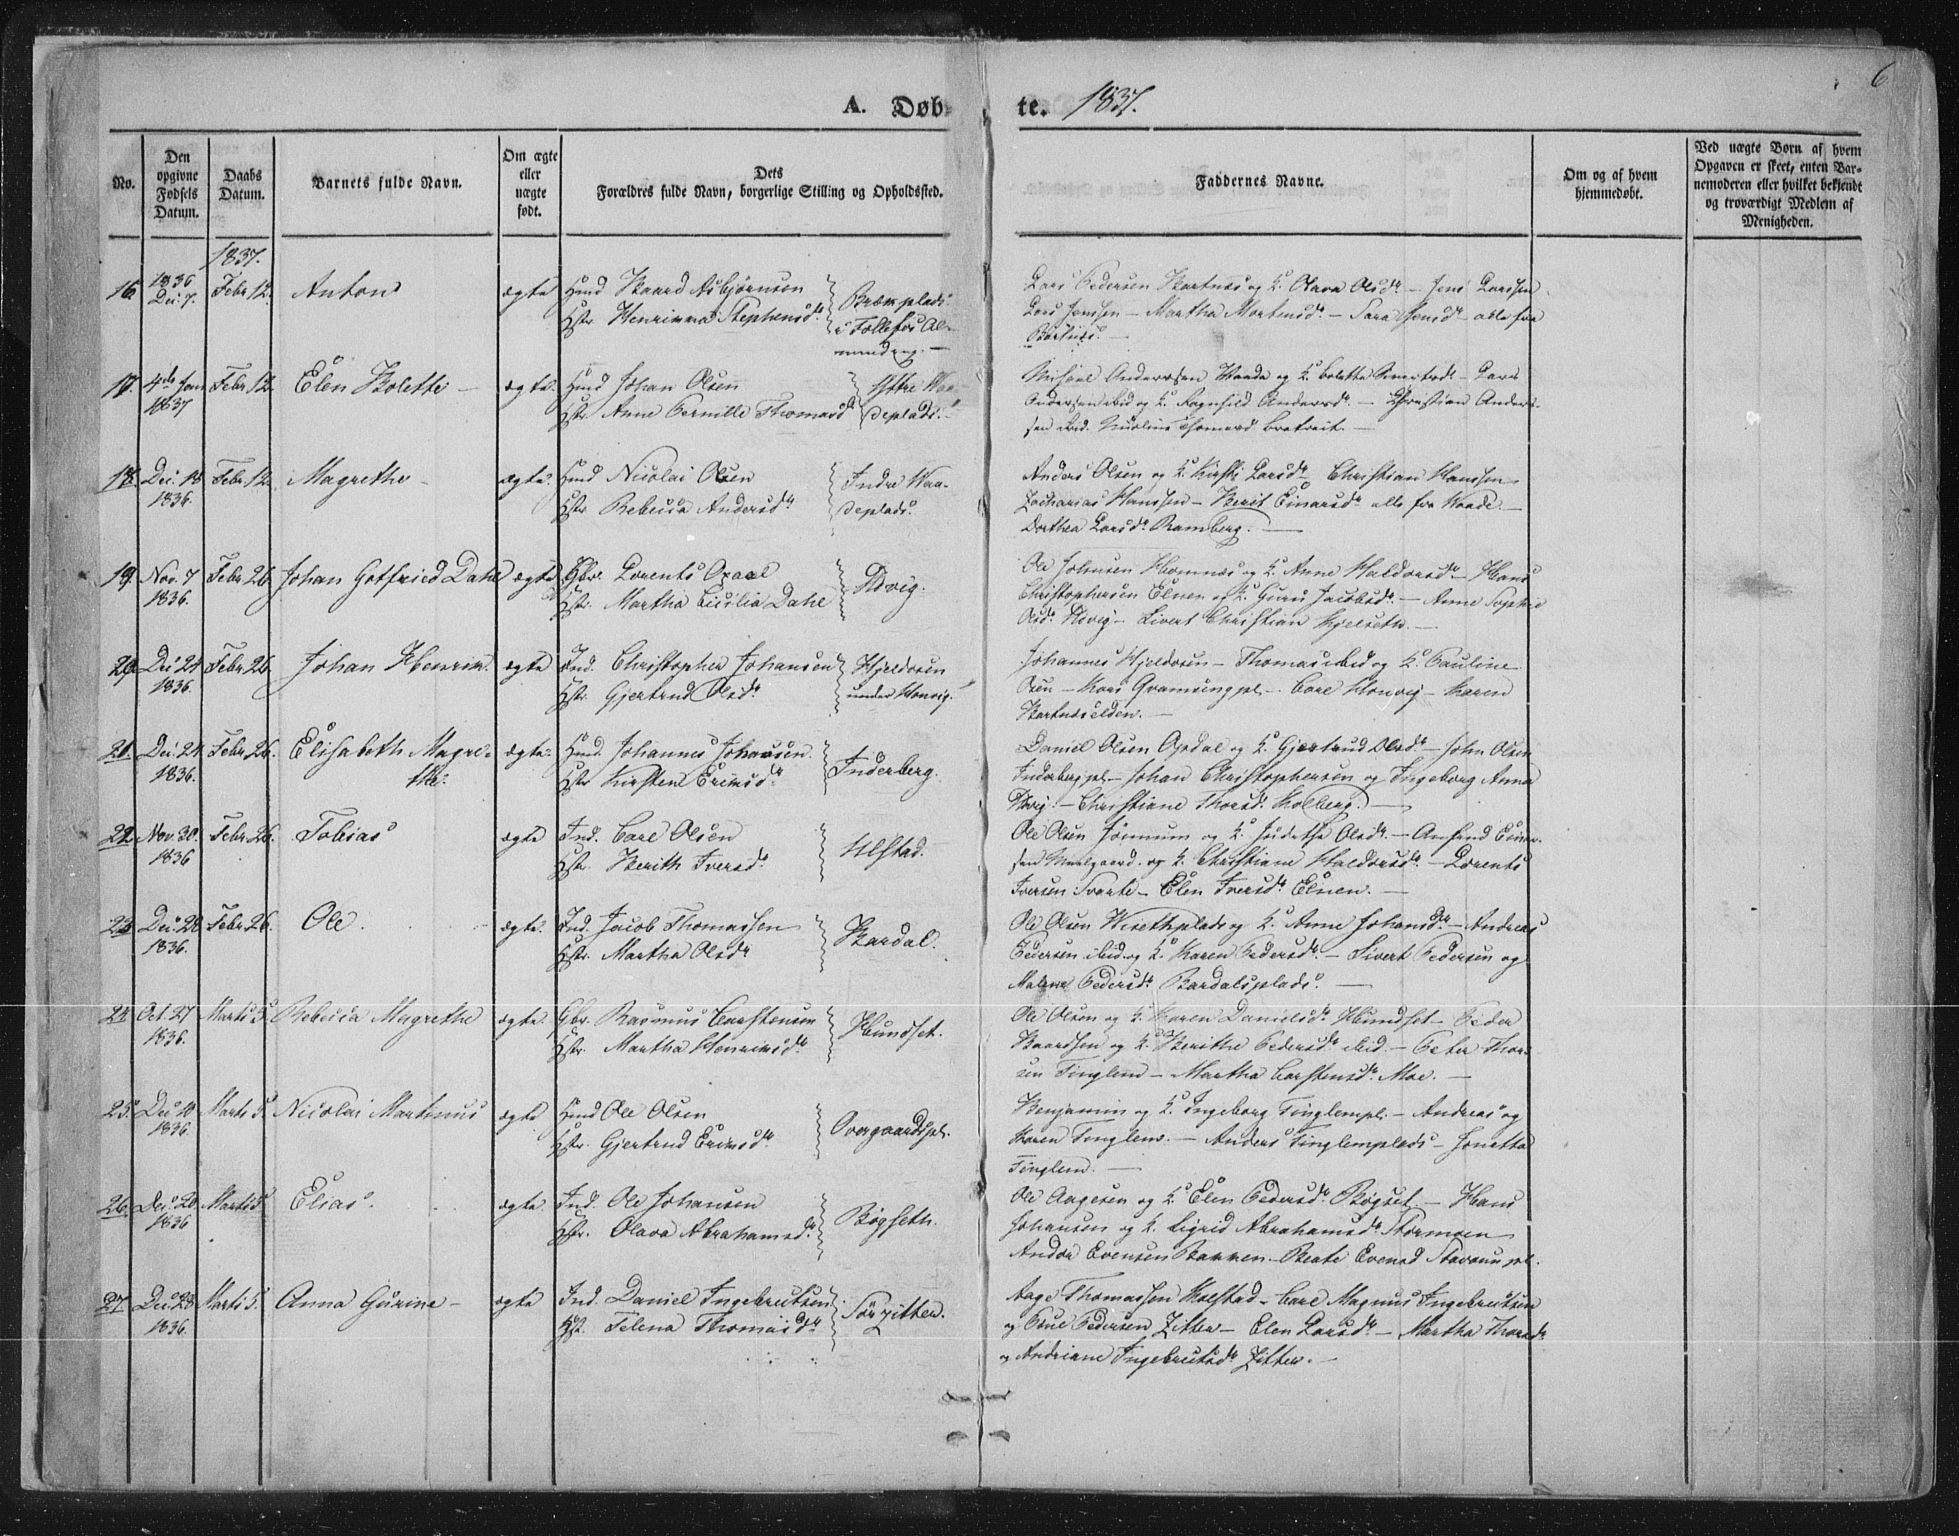 6
A. Døb- te. 1837.
No.
Den opgivne Fødsels Datum.
Daabs Datum.
Barnets fulde Navn.
Om ægte eller uægte født.
Dets Forældres fulde Navn, borgerlige Stilling og Opholdssted.
Faddernes Navne.
Om og af hvem hjemmedøbt.
Ved uægte Børn af hvem Opgaven er skeet, enten Barnemoderen eller hvilket bekjendt og troværdigt Medlem af Menigheden.
1837.
16. 1836 Dec. 7. Febr 12. Anton ægte Huusmd Baard Asbjørnsen
Hstr. Henrikka Stephensdr
Brækplads i Follefos Almending.
Lars Pedersen Bartnes og K. Olava Olsdr – Jens Larssen
Lars Jenssen – Martha Mortensdr – Sara Jensdr alle fra
Bartnes.
17. 4de Jan 1837 Febr 12. Elen Bolette – ægte. Hmd Johan Olsen
Hstr. Anne Pernille Thomasdr
Yttre Waadeplads.
Andersen ibid og K. Ragnhild Andersdr – Christian Anders-
18. Dec. 18 1836. Febr 12. Magrethe – ægte. Hmd Nicolai Olsen
Hstr. Rebecca Andersdr
Indre Waadeplads.
Anders Olsen og K. Kirsti Larsdr Christian Hanssen
Zacharias Hanssen – Berit Einarsdr alle fra Waade –
Dorthea Larsdr Ramberg. –
19. Nov. 7 1836. Febr 26. Johan Gotfried Dahl ægte Gbr. Lorents Opaal
Hstr. Martha Cicilia Dahl
Utvig.
Ole Johnsen Homnes og K. Anne Haldorsdr – Hans
Christophersen Elnen og K. Guru Jacobsdr. – Anne Sophie
Olsdr. Utvig – Sivert Christian Hjelseth. –
20. Dec 24 1836. Febr 26. Johan Henrik. ægte Ind. Christopher Johansen
Hstr. Gjertrud Olsdr
Hjeldosen under Honvig.
Johannes Hjeldosen – Thomas ibid og K. Pauline
Bartnæselden. –
21. Dec. 24. 1836. Febr 26. Elisabeth Magre-
the. ægte. Hmd. Johannes Johansen.
Hstr. Kirsten Eriksdr
Inderberg.
Daniel Olsen Opdal og K. Gjertrud Olsdr – John Olsen
Inderberg pl. – Johan Christophersen og Ingeborg Anna
Utvig. – Christiane Thorsdr. Kolberg. –
22. Nov 30. 1836 Febr 26. Tobias ægte Ind. Carl Olsen
Hstr. Berith Iversdr
Ulstad.
og K. Christiane Haldorsdr. – Lorents
Iversen Svarte – Elen Iversdr. Elnen. –
23. Dec. 28 1836. Febr 26. Ole. ægte. Ind. Jacob Thomassen
Hstr. Martha Olsdr
Bardal.
Ole Olsen Wisethplads og K. Anne Johansdr. – Andreas
Pedersen ibid. og K. Karen Pedersdr. – Sivert Pedersen og
Malene Pedersdr. Bardalsplads. –
24. Oct. 27 1836. Marts 5. Rebecca Magrethe ægte. Gbr. Rasmus Carstensen
Hstr. Martha Henriksdr
Hundset.
Ole Olsen og K. Karen Danielsdr. Hundset – Peder
Baardsen og K. Berithe Pedersdr. ibid. – Peter Thor-
sen Tinglem – Martha Carstensdr. Moe. –
25. Dec 10 1836. Marts 5. Nicolai Martinus ægte Hmd Ole Olsen
Hstr. Gjertrud Eriksdr
Overgaardspl.
Benjamin og K. Ingeborg Tinglempl. – Andreas og
Karen Tinglem. – Anders Tinglemplads – Jonetta
Tinglem. –
26. Dec. 20. 1836 Marts 5. Elias. ægte. Ind. Ole Johansen
Hstr. Olava Abrahamsdr
Bøgseth.
Ole Aagesen og K. Elen Pedersdr. Bøgset – Hans
Johansen og K. Sigrid Abrahamsdr. Stormoen
Andor Evensen Bakken. Beate Evensd
27. Dec 28 1836. Marts 5. Anna Gurine – ægte Ind. Daniel Ingebrigtsen
Hst. Telena Thomasdr
Sørzitter.
Aage Thomassen Kolstad – Carl Magnus Ingebrigtsen
og Poul Pedersen Zitter – Elen Larsdr – Martha Thorsdr.
og Andriane Ingebrigtsdr Zitter. –